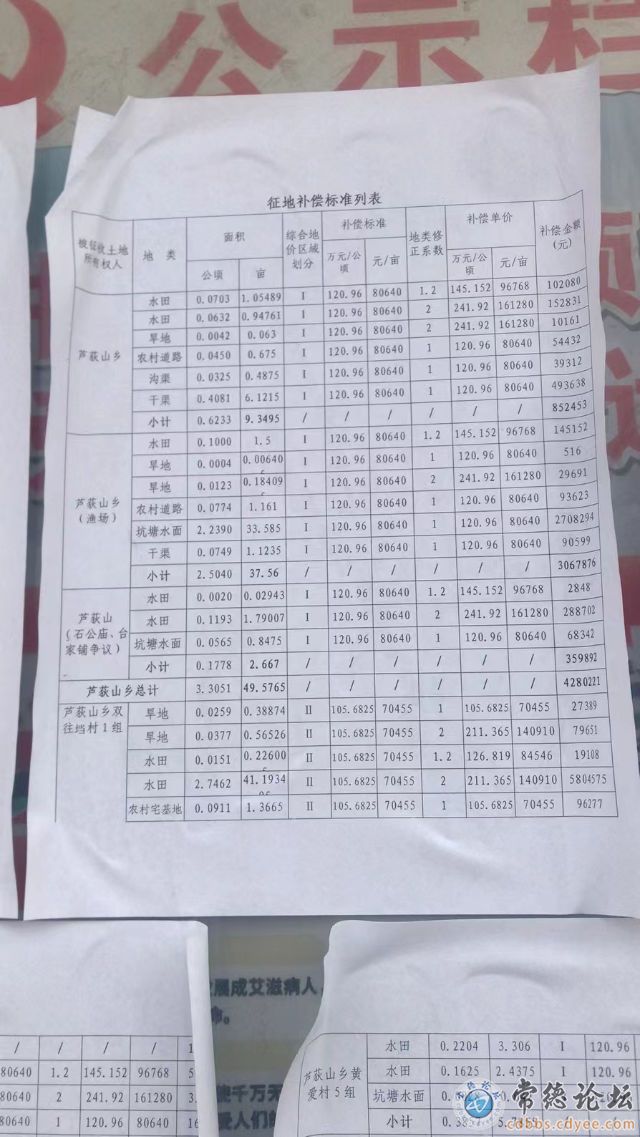 公示栏
征地补偿标准列表
被征收土地所有权人 地 类 面积 综合地价区域划分 补偿标准 地类修正系数 补偿单价 补偿金额(元)
公顷 亩 万元/公顷 元/亩 万元/公顷 元/亩
芦荻山乡 水田 0.0703 1.05489 I 120.96 80640 1.2 145.152 96768 102080
水田 0.0632 0.94761 I 120.96 80640 2 241.92 161280 152831
旱地 0.0042 0.063 I 120.96 80640 2 241.92 161280 10161
农村道路 0.0450 0.675 I 120.96 80640 1 120.96 80640 54432
沟渠 0.0325 0.4875 I 120.96 80640 1 120.96 80640 39312
干渠 0.4081 6.1215 I 120.96 80640 1 120.96 80640 493638
小计 0.6233 9.3495 / / / / / / 852453
芦荻山乡(渔场) 水田 0.1000 1.5 I 120.96 80640 1.2 145.152 96768 145152
旱地 0.0004 0.00640 I 120.96 80640 1 120.96 80640 516
旱地 0.0123 0.18409 I 120.96 80640 2 241.92 161280 29691
农村道路 0.0774 1.161 I 120.96 80640 1 120.96 80640 93623
坑塘水面 2.2390 33.585 I 120.96 80640 1 120.96 80640 2708294
干渠 0.0749 1.1235 I 120.96 80640 1 120.96 80640 90599
小计 2.5040 37.56 / / / / / / 3067876
芦荻山(石公庙、台家铺争议) 水田 0.0020 0.02943 I 120.96 80640 1.2 145.152 96768 2848
水田 0.1193 1.79007 I 120.96 80640 2 241.92 161280 288702
坑塘水面 0.0565 0.8475 I 120.96 80640 1 120.96 80640 68342
小计 0.1778 2.667 / / / / / / 359892
芦荻山乡总计 3.3051 49.5765 / / / / / / 4280221
芦荻山乡双往垱村1组 旱地 0.0259 0.38874 II 105.6825 70455 1 105.6825 70455 27389
旱地 0.0377 0.56526 II 105.6825 70455 2 211.365 140910 79651
水田 0.0151 0.22600 II 105.6825 70455 1.2 126.819 84546 19108
水田 2.7462 41.1934 II 105.6825 70455 2 211.365 140910 5804575
农村宅基地 0.0911 1.3665 II 105.6825 70455 1 105.6825 70455 96277
发展成艾滋病人
命。
/ / / / /
80640 1.2 145.152 96768
80640 2 241.92 161280
80640 1 120.96 80640
芦荻山乡黄爱村5组 水田 0.2204 3.306 I 120.96
水田 0.1625 2.4375 I 120.96
坑塘水面
小计
常德论坛
cdbbs.cdyee.com